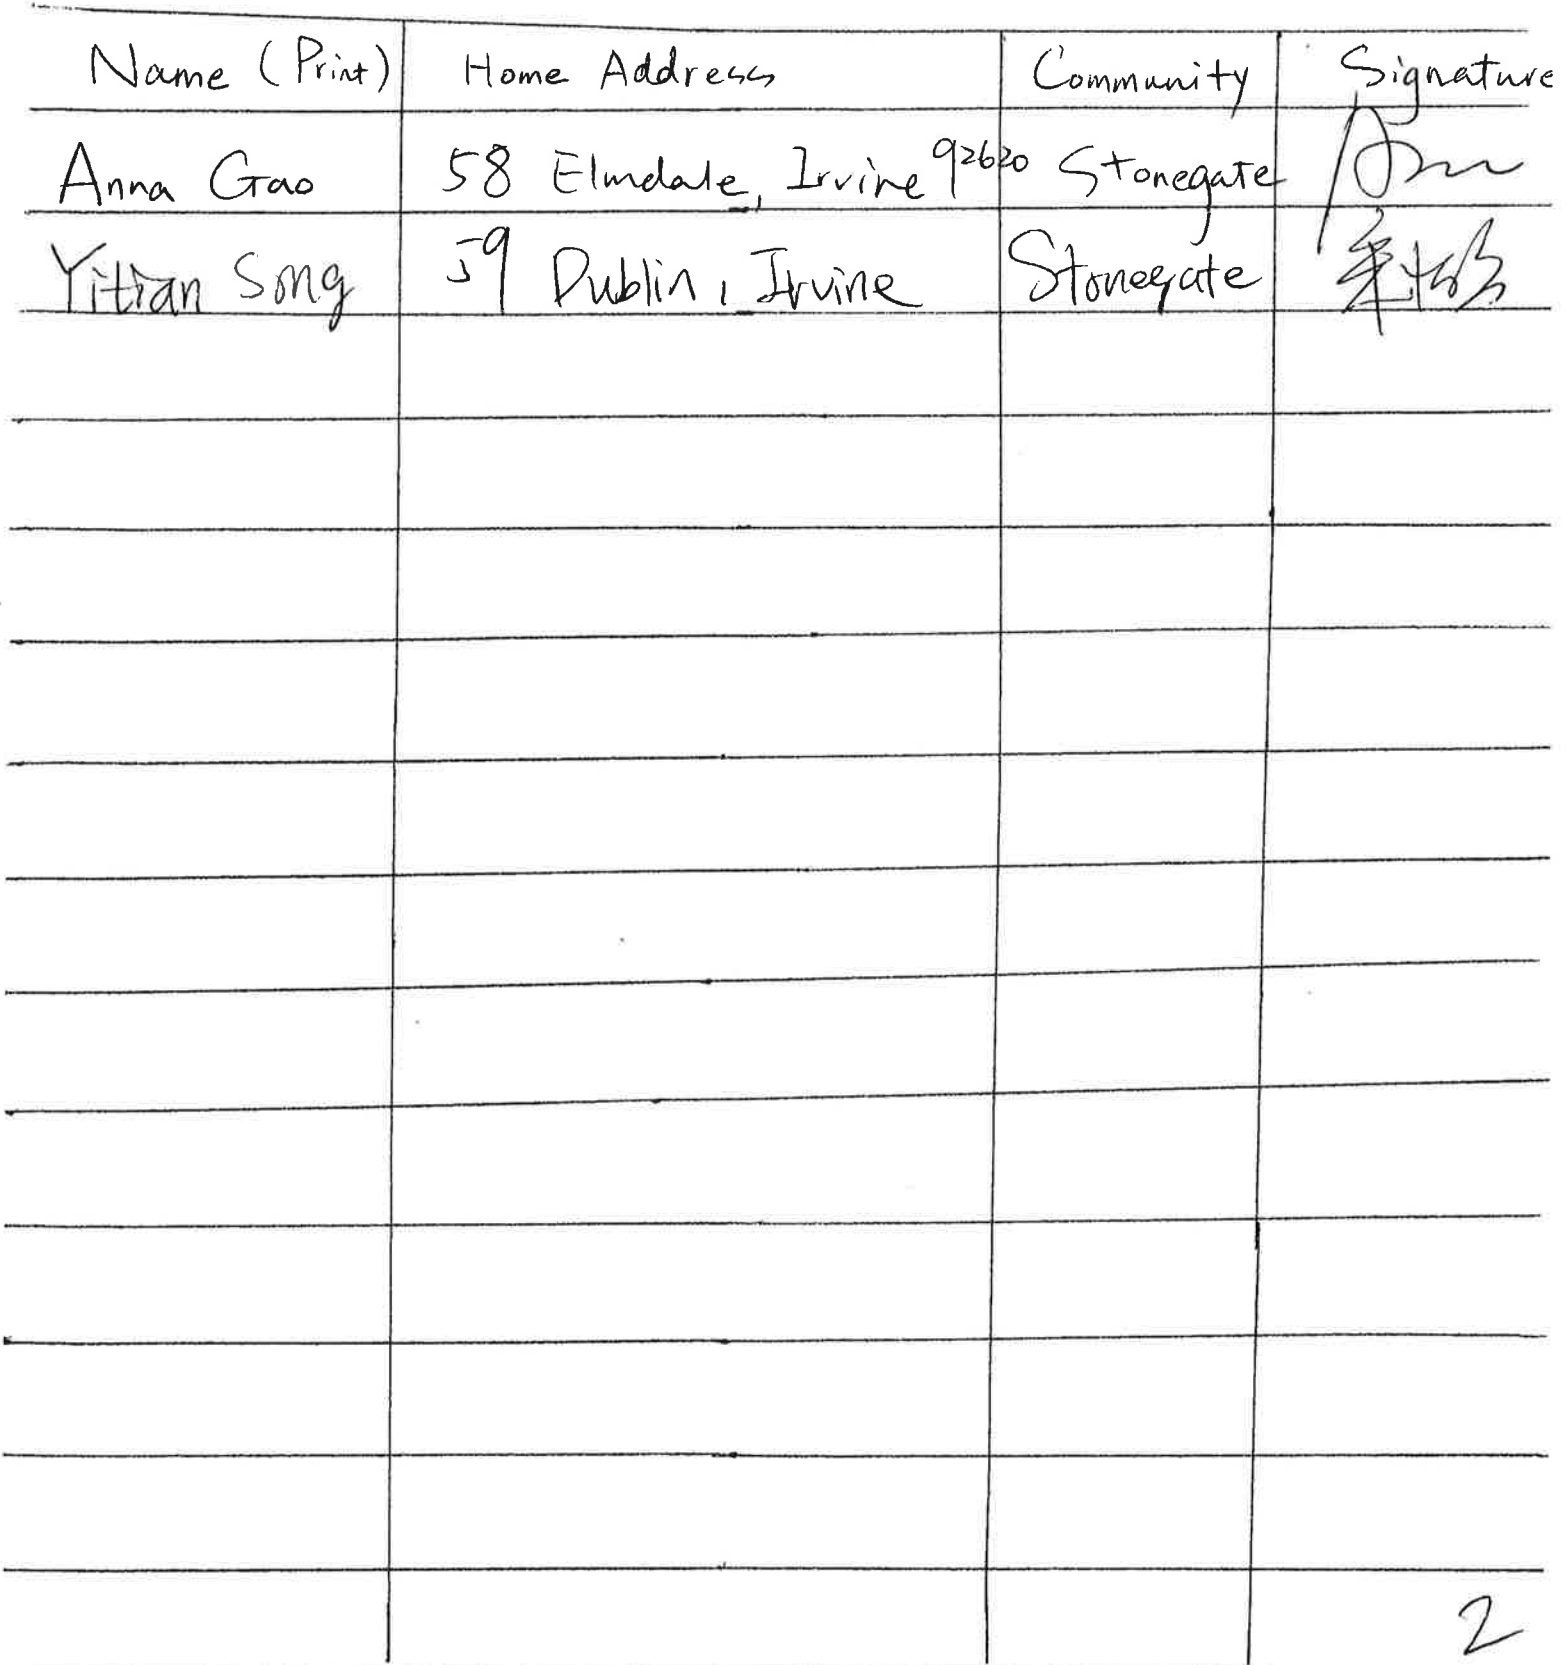 Name (Print) Home Address Community Signature
Anna Gao 58 Elmdale, Irvine 92620 Stonegate
Yitian Song 59 Dublin, Irvine Stonegate
2